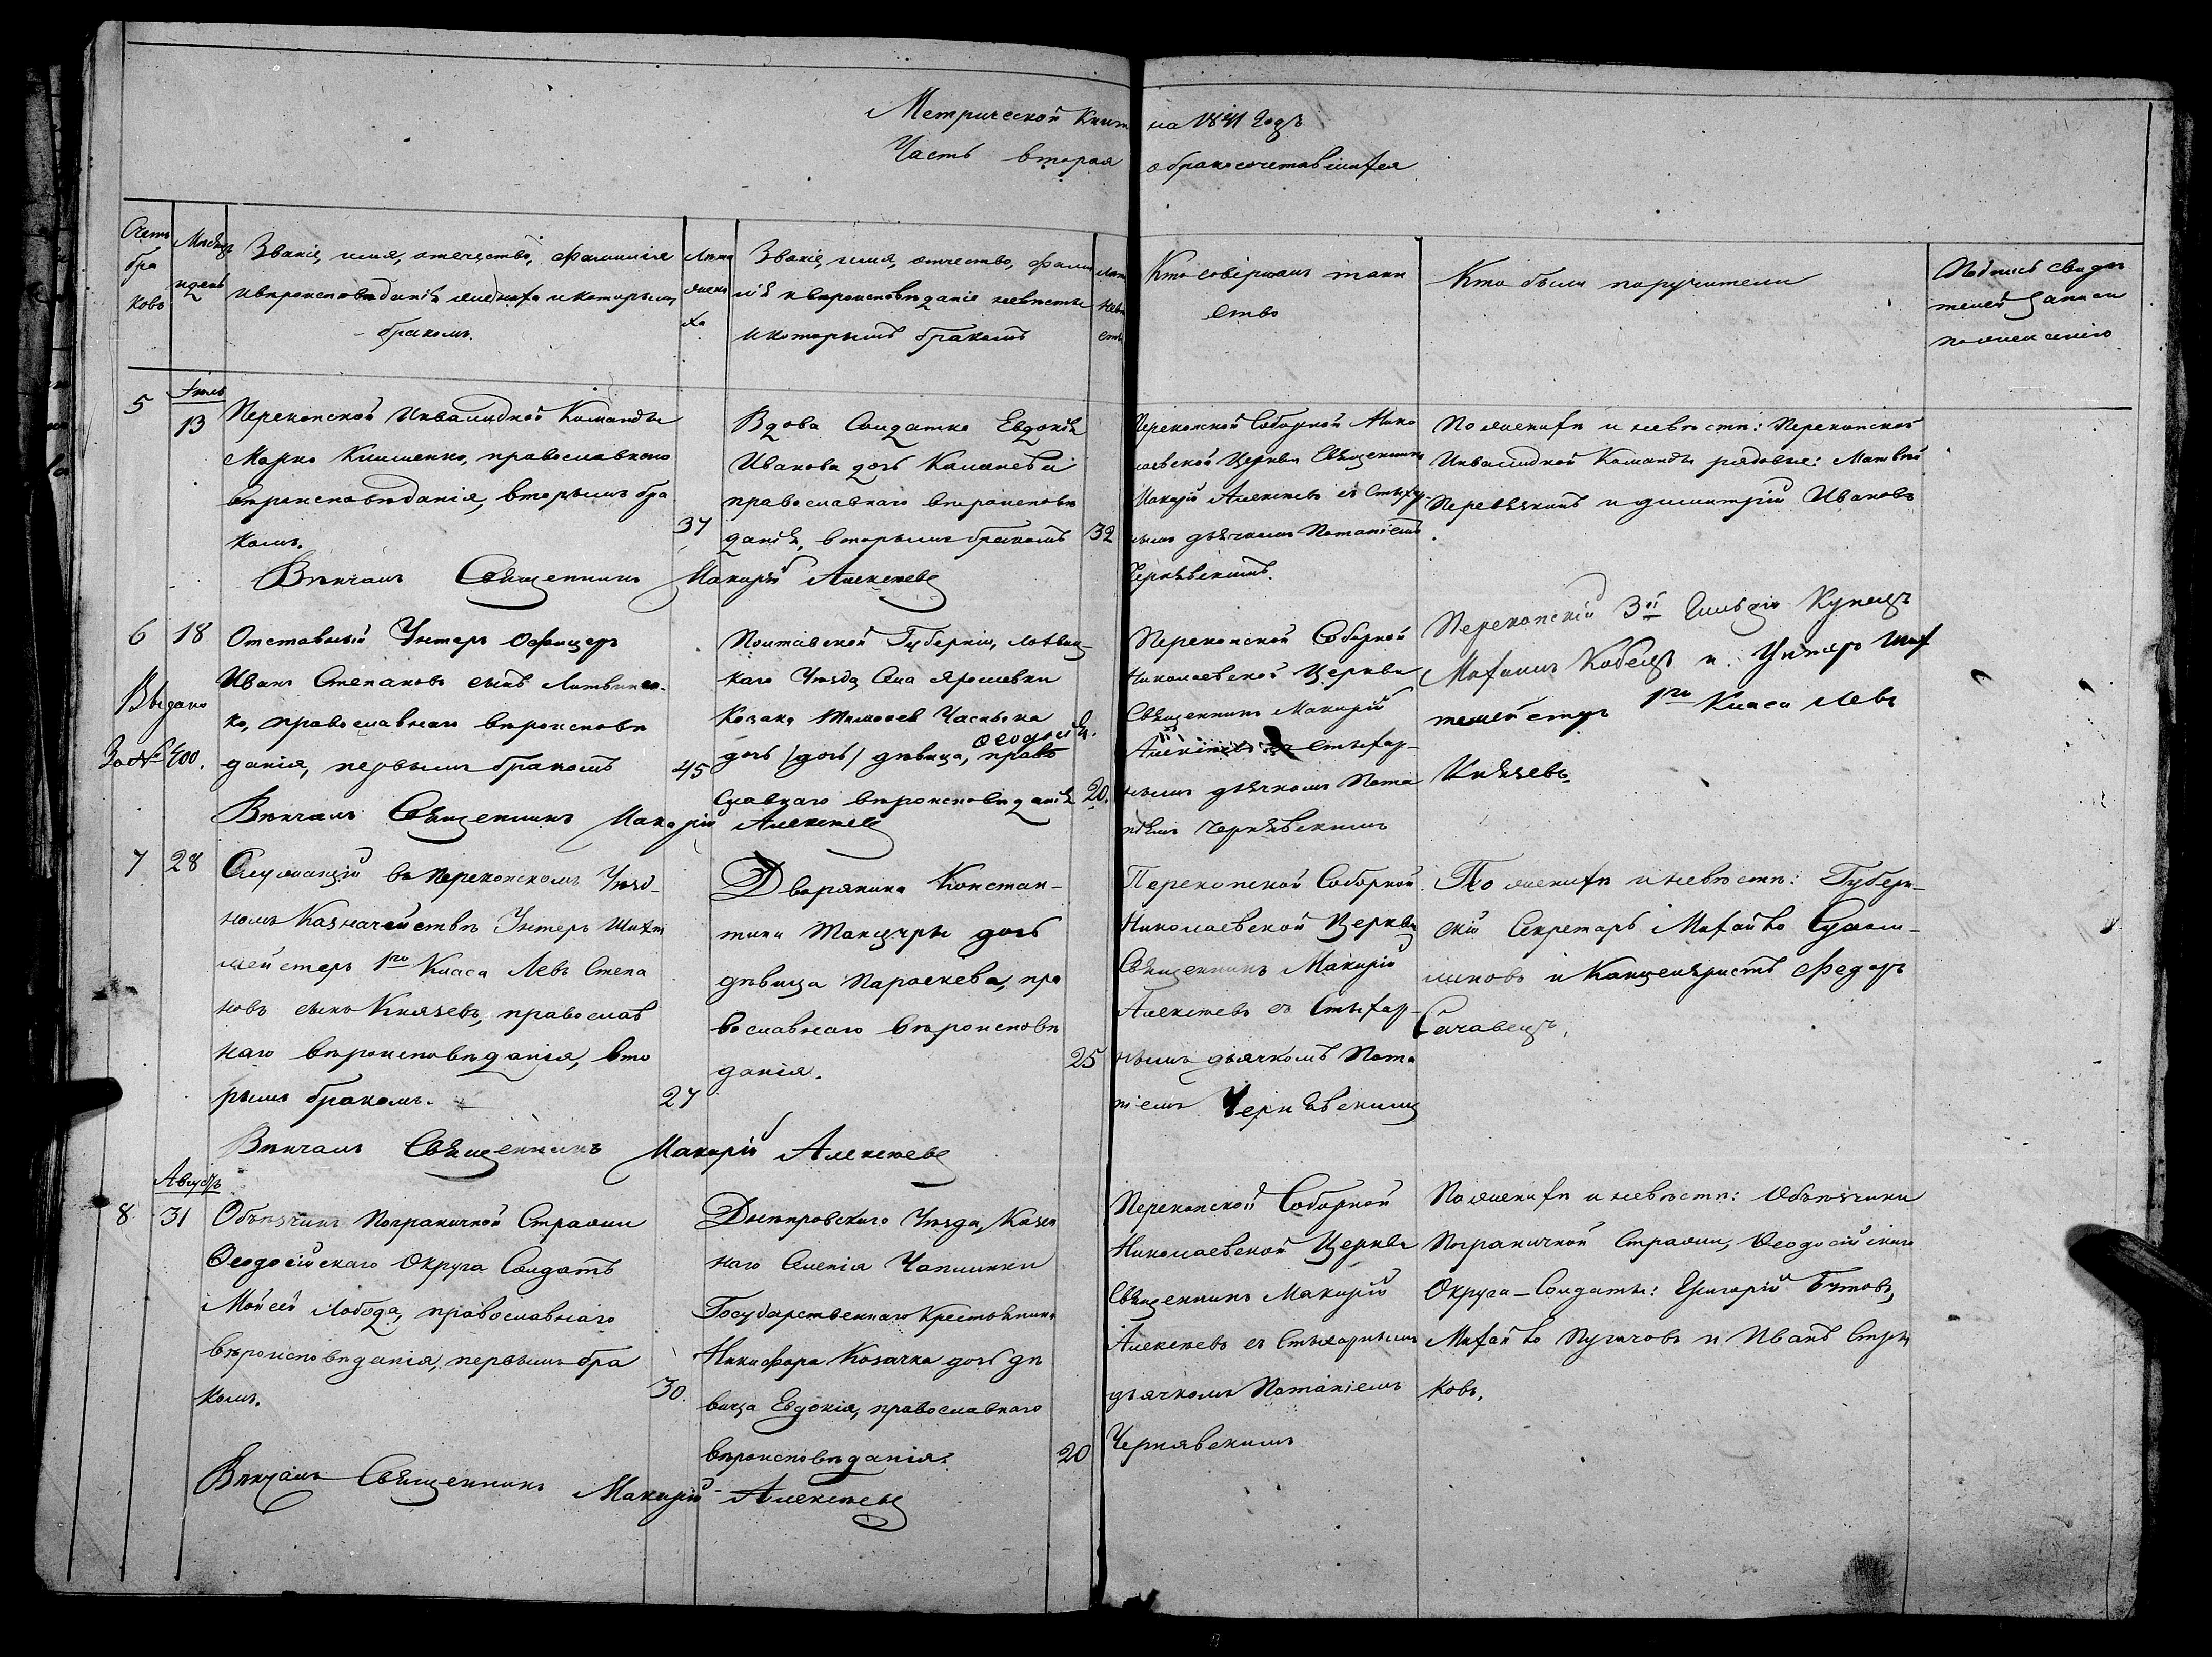 Метрической Книги на 1841 Годъ
Часть вторая о бракосочетавшихся
Счетъ
бра
ковъ
Мѣсяцъ
и день
Званіе, имя, отечество, фамилія
и вѣроисповѣданіе жениха и которымъ
бракомъ.
Лѣта
жени
ха
Званіе, имя, отчество, фами
лія и вѣроисповѣданіе невѣсты
и которымъ бракомъ
Лѣта
невѣ
сты
Кто совершалъ таин
ство
Кто были поручители
Подпись свидѣ
телей записи
по желанію
5
13
Перекопской Инвалидной Команды
Марко Клименко, православнаго
вѣроисповѣданія, вторымъ бра
комъ.
37
Вдова Солдатка Евдокія
Иванова дочь
православнаго вѣроисповѣ
данія, вторымъ бракомъ
32
Перекопской Соборной Нико
лаевской Церкви Священникъ
Макарій Алексѣевъ съ Стихар
нымъ дьячкомъ Потапіемъ
Чернявскимъ.
По женихѣ и невѣстѣ: Перекопской
Инвалидной Команды рядовые: Матвѣй
и Димитрій Ивановъ
Вѣнчалъ Священникъ Макарій Алексѣевъ
6
18
Выдано
За № 400.
Отставный Унтеръ Офицеръ
Иванъ Степановъ сынъ Литвинен
ко, православнаго вѣроисповѣ
данія, первымъ бракомъ
45
Полтавской Губерніи, Лохвиц
каго Уѣзда, Села Ярошевки
Козака Тимофея
дочь /дочь/ дѣвица, Ѳеодосія. право
славнаго вѣроисповѣданія
20.
Перекопской Соборной
Николаевской Церкви
Священникъ Макарій
Алексѣевъ съ Стихар
нымъ дьячкомъ Пота
піемъ Чернявскимъ
Перекопскій 3й Гильдіи Купецъ
Михаилъ Кобецъ и Унтеръ Ших
тмейстеръ 1го Класа Левъ
Князевъ.
Вѣнчалъ Священникъ Макарій Алексѣевъ
7
28
Служащій въ Перекопскомъ Уѣзд
номъ Казначействѣ Унтеръ Шихт
мейстеръ 1го Класа Левъ Степа
новъ сынъ Князевъ, православ
наго вѣроисповѣданія, вто
рымъ бракомъ.
27
Дворянина Констан-
тина дочь
дѣвица Параскева, пра
вославнаго вѣроисповѣ
данія.
25
Перекопской Соборной
Николаевской Церкви
Священникъ Макарій
Алексѣевъ съ Стихар
нымъ дьячкомъ Пота
піемъ Чернявскимъ
По женихѣ и невѣстѣ: Губерн-
скій Секретарь Михайло
и Канцеляристъ Федоръ
Вѣнчалъ Священникъ Макарій Алексѣевъ
Августъ
8
31
Объѣзчикъ Пограничной Стражи
Ѳеодосійскаго Округа Солдатъ
Мойсей Лобода, православнаго
вѣроисповѣданія, первымъ бра
комъ.
30.
Днепровскаго Уѣзда, Казен
наго Селенія Чаплинки
Государственнаго Крестьянина
Никифора Козачка дочь дѣ
вица Евдокія, православнаго
вѣроисповѣданія.
20
Перекопской Соборной
Николаевской Церкви
Священникъ Макарій
Алексѣевъ съ Стихарнымъ
дьячкомъ Потапіемъ
Чернявскимъ
По женихѣ и невѣстѣ: Объѣзчики
Пограничной Стражи, Ѳеодосійскаго
Округа - Солдаты: Григорій Бутовъ,
Михайло Пугачовъ и Иванъ Стру
ковъ.
Вѣнчалъ Священникъ Макарій Алексѣевъ